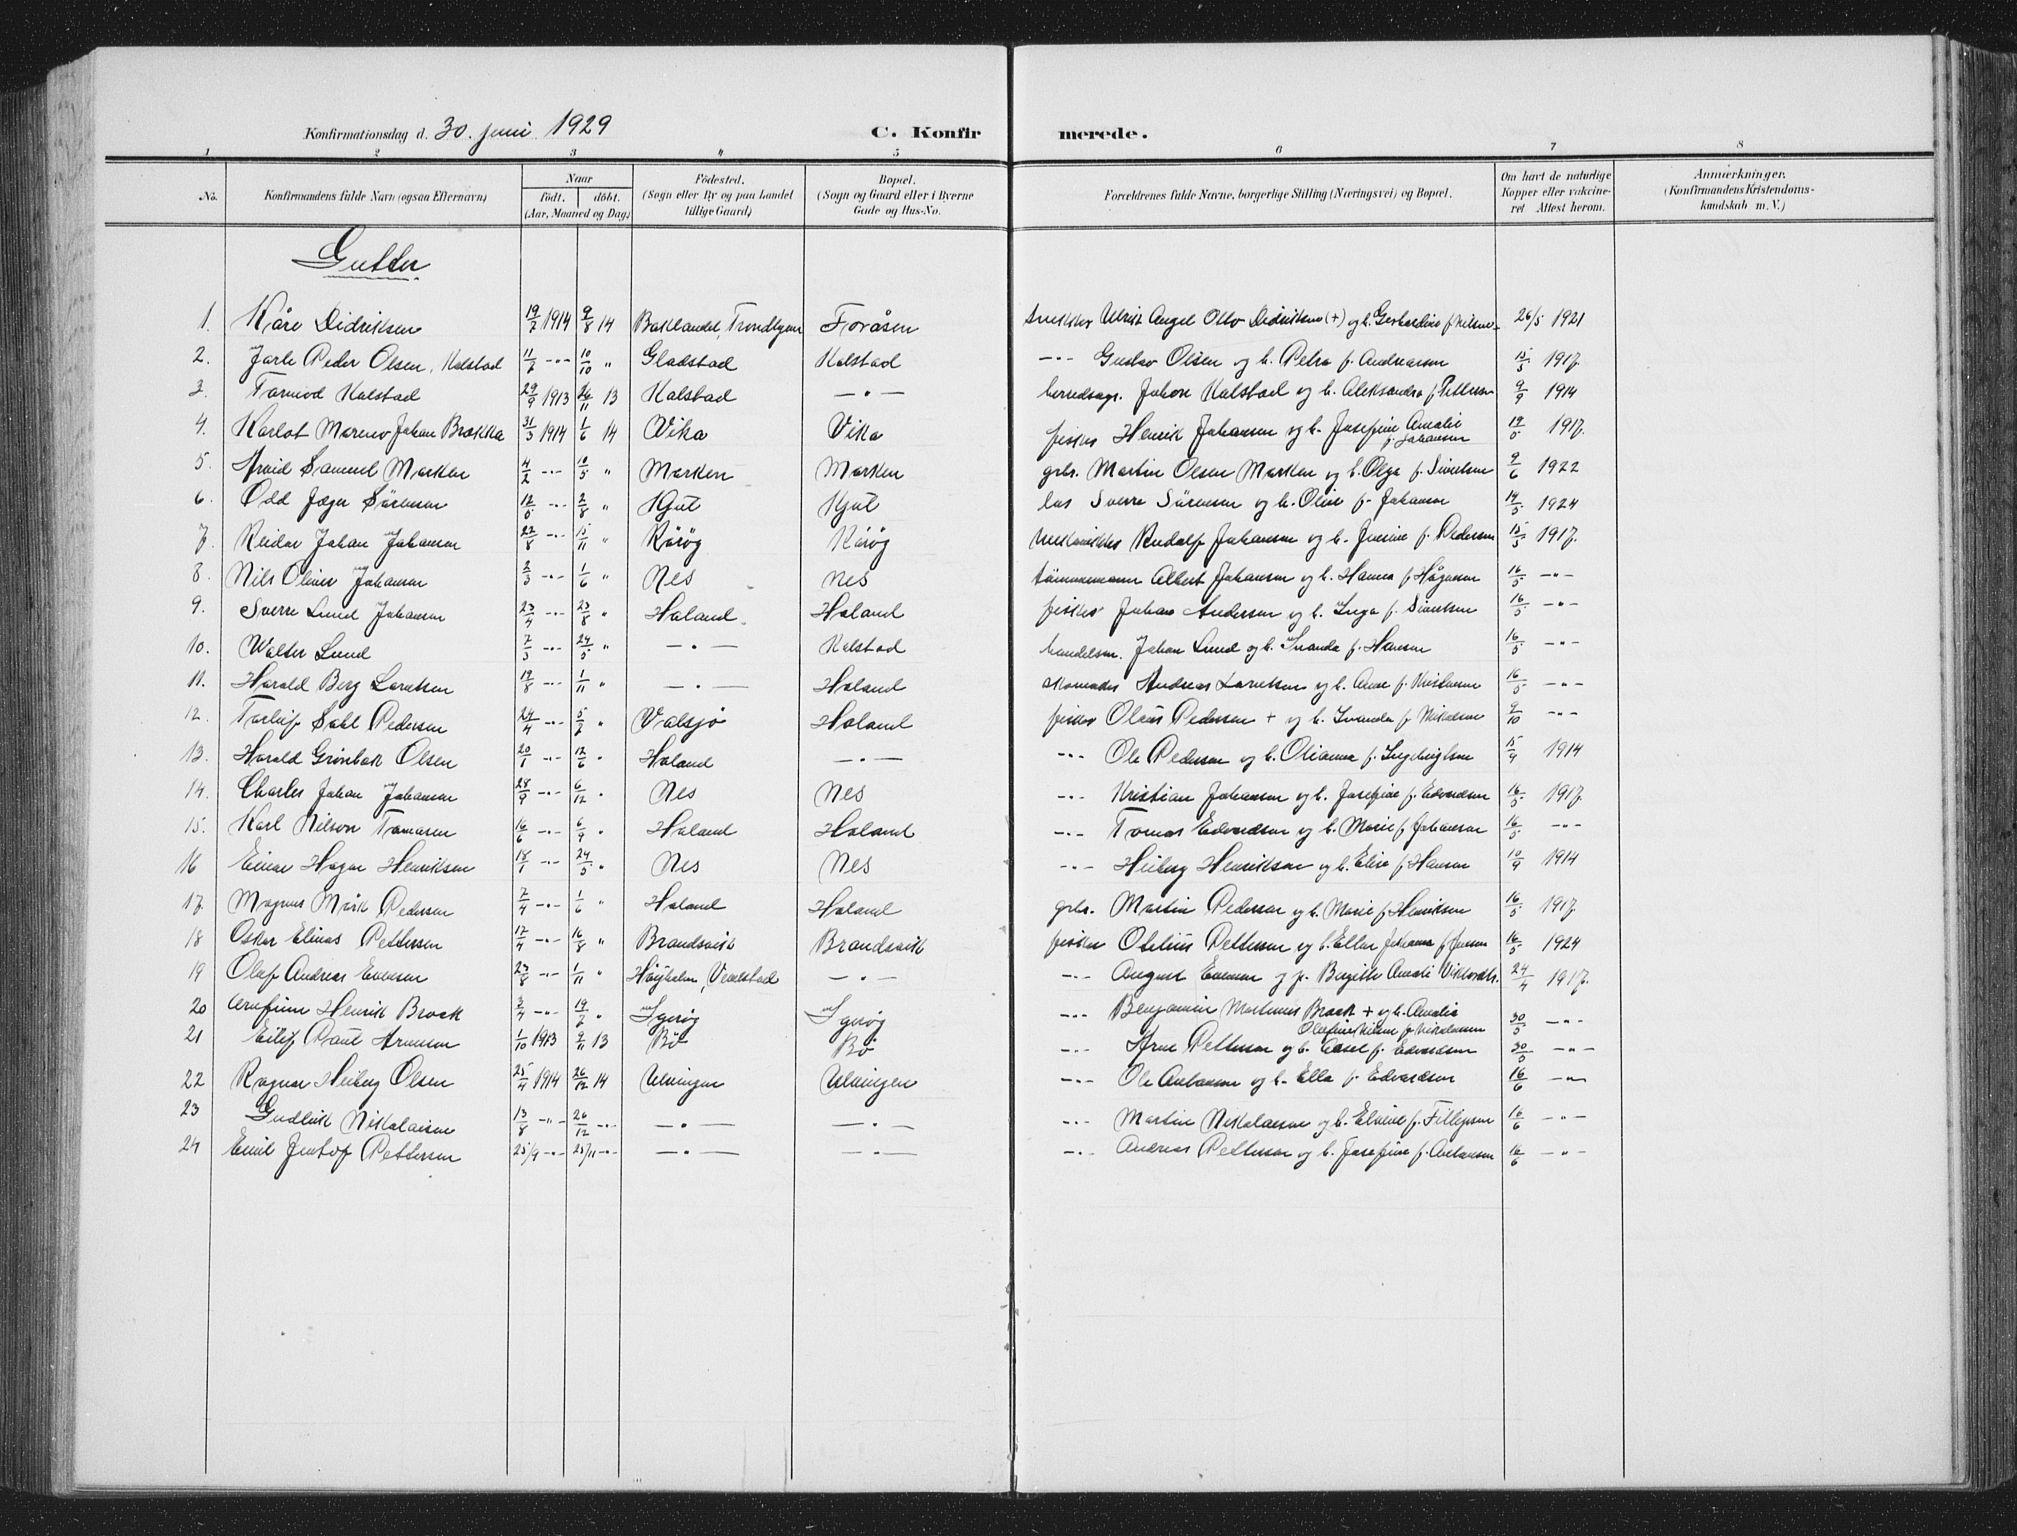 Konfirmationsdag d. 30. juni 1929 C. Konfir merede.
1 2 3 4 5 6 7 8
No. Konfirmandens fulde Navn (ogsaa Efternavn) Naar Födested. Bopæl. Forældrenes fulde Navne, borgerlige Stilling (Næringsvei) og Bopæl. Om havt de naturlige Anmærkninger.
födt. döbt. (Sogn eller By og paa Landet (Sogn og Gaard eller i Byerne Kopper eller vakcine- (Konfirmandens Kristendoms-
(Aar, Maaned og Dag) tillige Gaard) Gade og Hus-No. ret Attest herom. kundskab m. V.)
Gutter
1. Kåre Didriksen 19/7 1914 9/8 14 Baklandet, Trondhjem Foråsen Ulrik Angel Otto Didriksen (+) og h. Gerhardine f. Nilsen 26/5 1921
2. Jarle Peder Olsen, Kalstad 11/7 -"- 10/10 " Gladstad Kalstad -"- Gustav Olsen og h. Petra f. Andreassen 15/5 1917.
3. Tormod Kalstad 29/9 1913 26/11 13 Kalstad -"- herredsagr. Johan Kalstad og h. Aleksandra f. Pettersen 9/9 1914
4. Karlot Marino Johan Brokka 31/3 1914 1/6 14 Vika Vika fisker Henrik Johansen og h. Josefine Amalie f. Johansen 19/5 1917.
5. Arvid Samuel Marken 4/2 -"- 10/5 " Marken Marken grbr. Martin Olsen Marken og h. Olga f. Sivertsen 9/6 1922
6. Odd Jæger Sörensen 12/5 -"- 2/8 " Hjut Hjut los Sverre Sörensen og h. Oline f. Johansen 14/5 1924
7. Reidar Johan Johansen 22/8 -"- 15/11 " Rörög Rörög Rudolf Johansen og h. Jensine f. Pedersen 15/5 1917.
8. Nils Oliver Johansen 2/3 -"- 1/6 " Nes Nes tömmermann Albert Johansen og h. Hanna f. Hågensen 16/5 -"-
9. Sverre Lund Johansen 23/4 -"- 23/8 " Holand Holand fisker Johan Andersen og h. Inga f. Sivertsen 16/5 -"-
10. Walter Lund 7/3 -"- 24/5 " -"- Kalstad handelsm. Johan Lund og h. Svanda f. Hansen 16/5 -"-
11. Harald Berg Lorntsen 19/8 -"- 1/11 " -"- Holand skomaker Andreas Lorntsen og h. Anne f. Kristensen 16/5 -"-
12. Torleif Dahl Pedersen 24/4 -"- 5/7 " Valsjö Holand fisker Olaus Pedersen + og h. Svanda f. Nikolsen 9/10 -"-
13. Harald Grönbak Olsen 20/1 -"- 12/6 " Holand -"- -"- Ole Pedersen og h. Olianna f. Ingebrigtsen 15/9 1914
14. Charles Johan Johansen 28/9 -"- 6/12 " Nes Nes -"- Kristian Johansen og h. Josefine f. Edvardsen 16/5 1917.
15. Karl Nilson Tomasen 16/6 -"- 6/9 " Holand Holand -"- Tomas Edvardsen og h. Marie f. Johansen 16/5 -"-
16 Einar Hagen Henriksen 18/1 -"- 24/5 " Nes Nes -"- Heiberg Henriksen og h. Elise f. Hansen 10/9 1914
17. Magnus Mörk Pedersen 7/4 -"- 1/6 " Holand Holand grbr. Martin Pedersen og h. Marie f. Henriksen 16/5 1917.
18 Oskar Elinas Pettersen 17/4 -"- 16/8 " Brandsvik Brandsvik fisker Otelius Pettersen og h. Ella Johanna f. Jensen 16/5 1924
19 Olaf Andreas Evensen 23/8 -"- 1/11 " Höyholm, Vevelstad -"- -"- August Evensen og p. Bergitte Amalie Viktorsdtr. 24/4 1917.
20 Henrik Brock 3/4 -"- 19/7 " Igerög Igerög -"- Benjamin Martinus Brock + og h. Amalia
21 Eilif Paul Arnesen 1/10 1913 9/11 13 Bö Bö -"- Arne Pettersen og h. f. Edvardsen 30/5 -"-
22 Ragnar Heiberg Olsen 25/4 1914 26/12 14 Ulvingen Ulvingen -"- Ole Antonsen og h. Ella f. Edvardsen 16/6 -"-
23 Gudleik Nikolaisen 13/8 -"- 26/12 -"- -"- -"- -"- Martin Nikolaisen og h. Elvine f. Fillipsen 16/6 -"-
24 Emil Jentof Pettersen 25/9 -"- 25/11 -"- -"- -"- -"- Andreas Pettersen og h. Josefine f. Antonsen 16/6 -"-